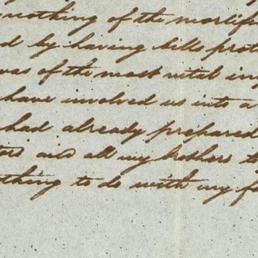 nothing of the mortifi
d by having bills prot
was of the most vital in
have involved us into a
had already prepared
ters and all my brothers to
othing to do with my f